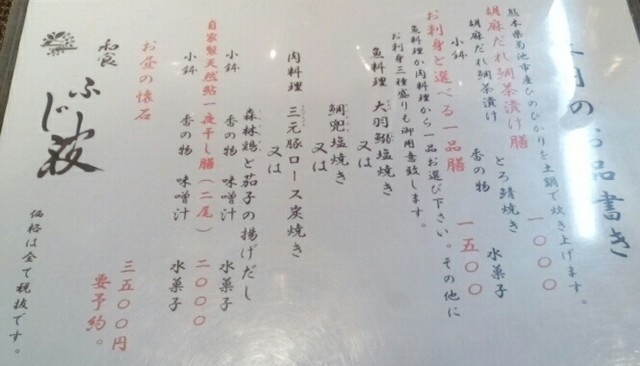 月のお品書き
熊本県菊池市産ひのひかりを土鍋で炊き上げます。
胡麻だれ鯛茶漬け膳 一〇〇〇
胡麻だれ鯛茶漬け とろ鯖焼き 水菓子
小鉢 香の物
お刺身と選べる一品膳 一五〇〇
魚料理か肉料理から一品お選び下さい。その他に
お刺身三種盛りも御用意致します。
魚料理 大羽鰯塩焼き
又は
鯛兜塩焼き
又は
肉料理 三元豚ロース炭焼き
又は
森林鶏と茄子の揚げだし
小鉢 香の物 味噌汁 水菓子
自家製天然鮎一夜干し膳(二尾) 二〇〇〇
小鉢 香の物 味噌汁 水菓子
お昼の懐石 三五〇〇円
要予約。
和食
ふじ波
価格は全て税抜です。